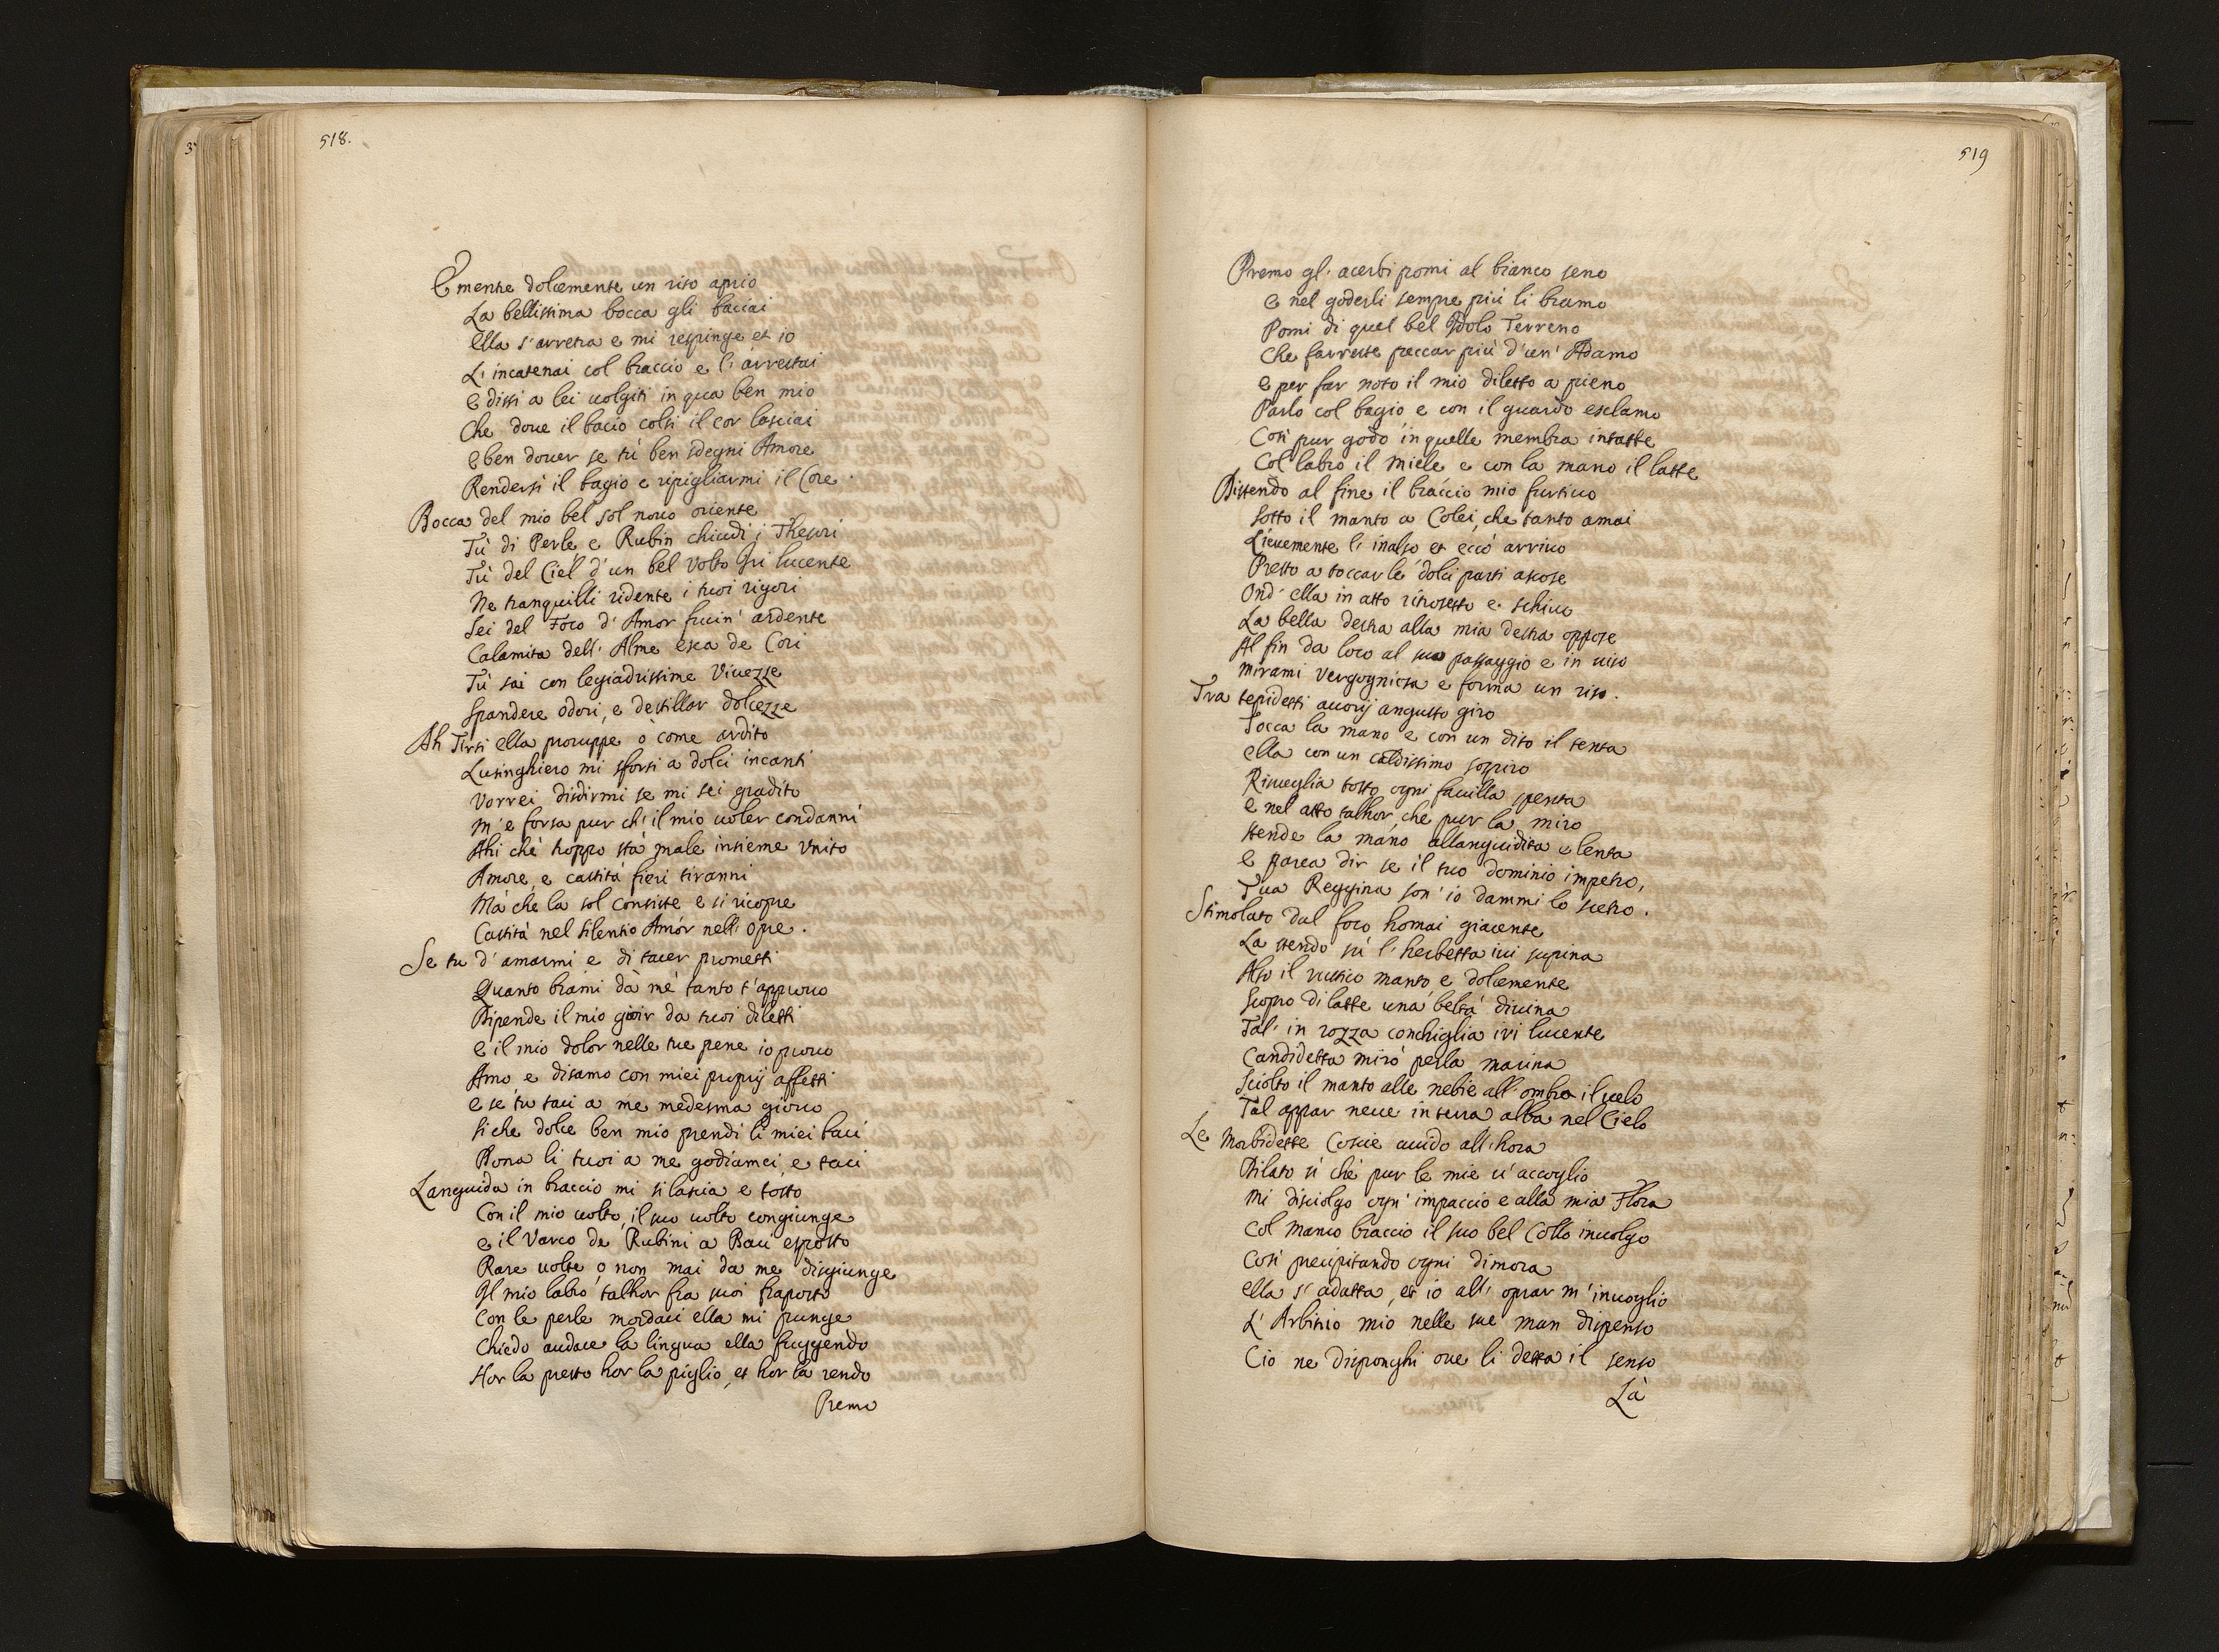 518.
E mentre dolcemente un riso aprio
La bellissima bocca gli baciai
ella s'arretra e mi respinge et io
L'incatenai col braccio e l'arrestai
e dissi a lei uolgiti in qua ben mio
Che doue il bacio colsi il cor lasciai
e ben douer se tù ben sdegni Amore
Rendersi il bagio e ripigliarmi il Core.
Bocca del mio bel sol nouo oriente
Tù di Perle e Rubin chiudi i Thesori
Tù del Ciel d'un bel volto Iri lucente
Ne tranquilli ridente i tuoi rigori
Sei del Foco d'Amor fucin' ardente
Calamita dell'Alme esca de Cori
Tù sai con legiadrissime viuezze
Spandere odori, e destillar dolcezze
Ah Tirsi ella proruppe ò come ardito
Lusinghiero mi sforsi a dolci incanti
vorrei disdirmi se mi sei gradito
m'e forsa pur ch'il mio uoler condanni
Ahi chè troppo stà male insieme vnito
Amore, e castità fieri tiranni
Mà che la sol consiste e si ricopre
Castità nel silentio Amór nell'opre.
Se tu d'amarmi e di tacer prometti
Quanto brami dà mè tanto t'approuo
Dipende il mio gioir da tuoi diletti
e il mio dolor nelle tue pene io prouo
Amo, e disamo con miei proprij affetti
e se tu taci a me medesma giouo
siche dolce ben mio prendi li miei baci
Dona li tuoi a me godiamci, e taci
Languida in braccio mi si lascia e tosto
Con il mio uolto, il suo uolto congiunge
e il varco de Rubini a Baci esposto
Rare uolte ò non mai da me disgiunge
Il mio labro talhor fra suoi fraposto
Con le perle mordaci ella mi punge
Chiedo audace la lingua ella fuggendo
Hor la presto hor la piglio, et hor la rendo
Premo
519
Premo gl'acerbi pomi al bianco seno
e nel goderli sempre più li bramo
Pomi di quel bel Idolo Terreno
Che farreste peccar più d'un' Adamo
e per far noto il mio diletto a pieno
Parlo col bagio e con il guardo esclamo
Così pur godo in quelle membra intatte
Col labro il miele e con la mano il latte
Distendo al fine il braccio mio furtiuo
Sotto il manto a Colei, che tanto amai
Lieuemente l'inalso et ecco arriuo
Presto a toccar le dolci parti ascose
Ond'ella in atto ritrosetto e schiuo
La bella destra alla mia destra oppose
Al fin da loco al suo passaggio e in uiso
mirami vergogniosa e forma un riso.
Tra tepidetti auorij angusto giro
Tocca la mano e con un dito il tenta
ella con un caldissimo sospiro
Risueglia tosto ogni fauilla spenta
e nel atto talhor, che pur la miro
stende la mano allanguidita e lenta
e parea dir se il tuo dominio impetro,
Tua Reggina son' io dammi lo scetro.
Stimolato dal foco homai giacente
La stendo sù l'herbetta iui supina
Also il rustico manto e dolcemente
Scopro di latte una beltà diuina
Tal' in rozza conchiglia ivi lucente
Candidetta mirò perla marina
Sciolto il manto alle nebie all'ombra il uelo
Tal appar neue in terra alba nel Cielo
Le morbidette coscie auido all'hora
Dilato sì che pur le mie u'accoglio
mi disciolgo ogn' impaccio e alla mia Flora
Col manco braccio il suo bel Collo inuolgo
Così precipitando ogni dimora
ella s'adatta, et io all'oprar m'inuoglio
L'Arbitrio mio nelle sue man dispenso
Cio ne disponghi oue li detta il senso
Là